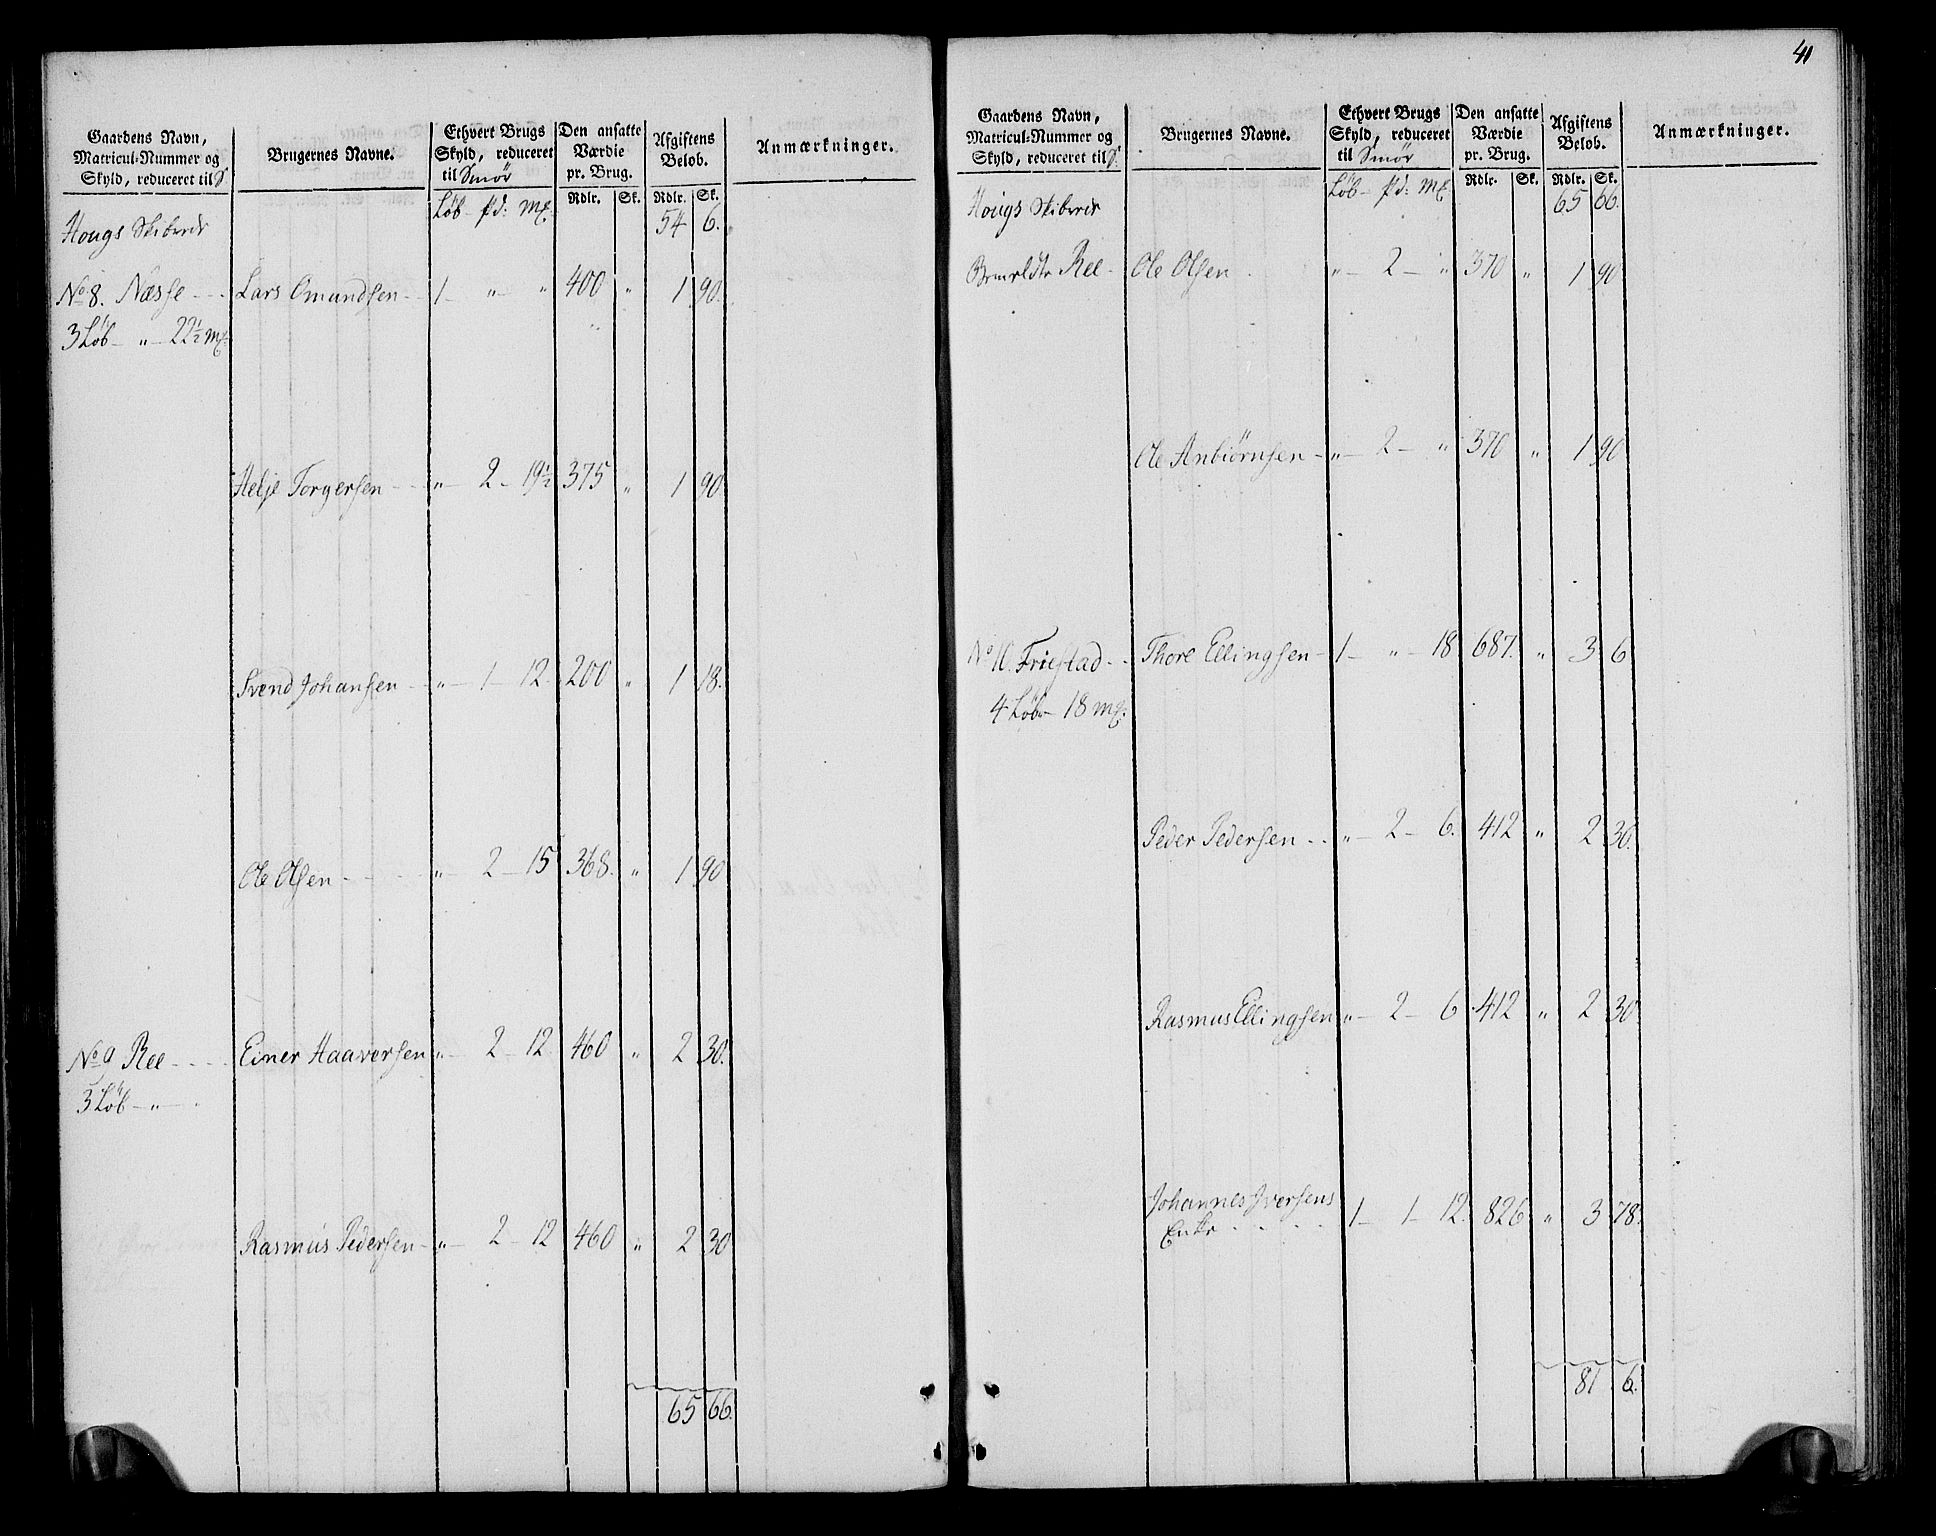 Gaardens Navn,
Matricul-Nummer og
Skyld, reduceret til S
Brugernes Navne.
Ethvert Brugs
Skyld, reduceret
til Smör
Den ansatte
Værdie
pr. Brug.
Afgiftens
Belob.
Anmærkninger.
Löb - pd: mk.
Rdlr. Sk. Rdlr. Sk.
Hougs Skibrede 54 6.
No 8. Næsse - - - Lars Omundsen - - 1 - " - " 400 " 1 90.
3 Löb - " - 22½ mk:
Helje Torgersen - - " - 2 - 19½ 375 " 1 90.
Svend Johansen - " - 1 - 12. 200 " 1 18.
Ole Olsen - - - - " - 2 - 15 368. " 1 90
No 9 Ree - - - - Einer Haaversen " - 2 - 12 460 " 2 30.
3 Löb - " -
Rasmus Pedersen - " - 2 - 12 460 " 2 30
65 66.
41
Gaardens Navn,
Matricul-Nummer og
Skyld, reduceret til S
Brugernes Navne.
Ethvert Brugs
Skyld, reduceret
til Smör
Den ansatte
Værdie
pr. Brug.
Afgiftens
Belob.
Anmærkninger.
Löb - pd: mk
Rdlr. Sk. Rdlr. Sk.
Hougs Skibrede 65 66.
Ree - Ole Olsen " - 2 - " 370 " 1 90
Ole Anbiörnsen - " - 2 - " 370 " 1 90
No 10. Friestad - - Thore Ellingsen - 1 - " - 18 687. " 3 6
4 Löb - 18 mk:
Peder Pedersen - - " - 2 - 6. 412 " 2 30.
Rasmus Ellingsen " - 2 - 6 412 " 2 30
Johannes Iversens
Enke - - - - 1 - 1 - 12. 826 " 3 78.
81 6.